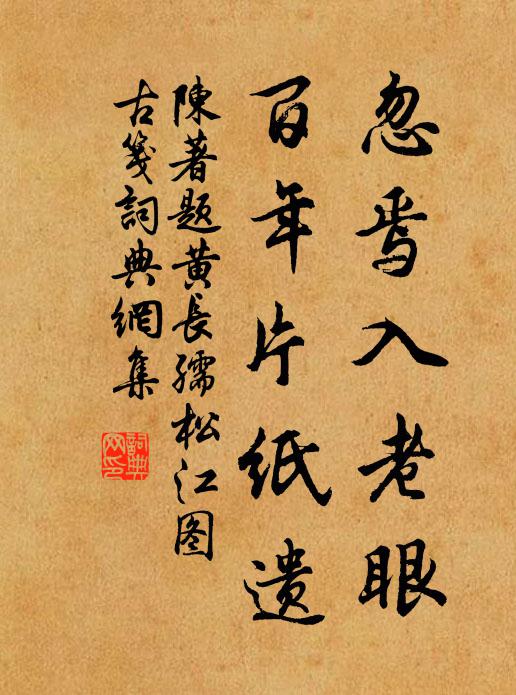 忽焉入老眼
百年片纸遗
陳著題黄長孺松江图
古箋詞典網集
詞典网印